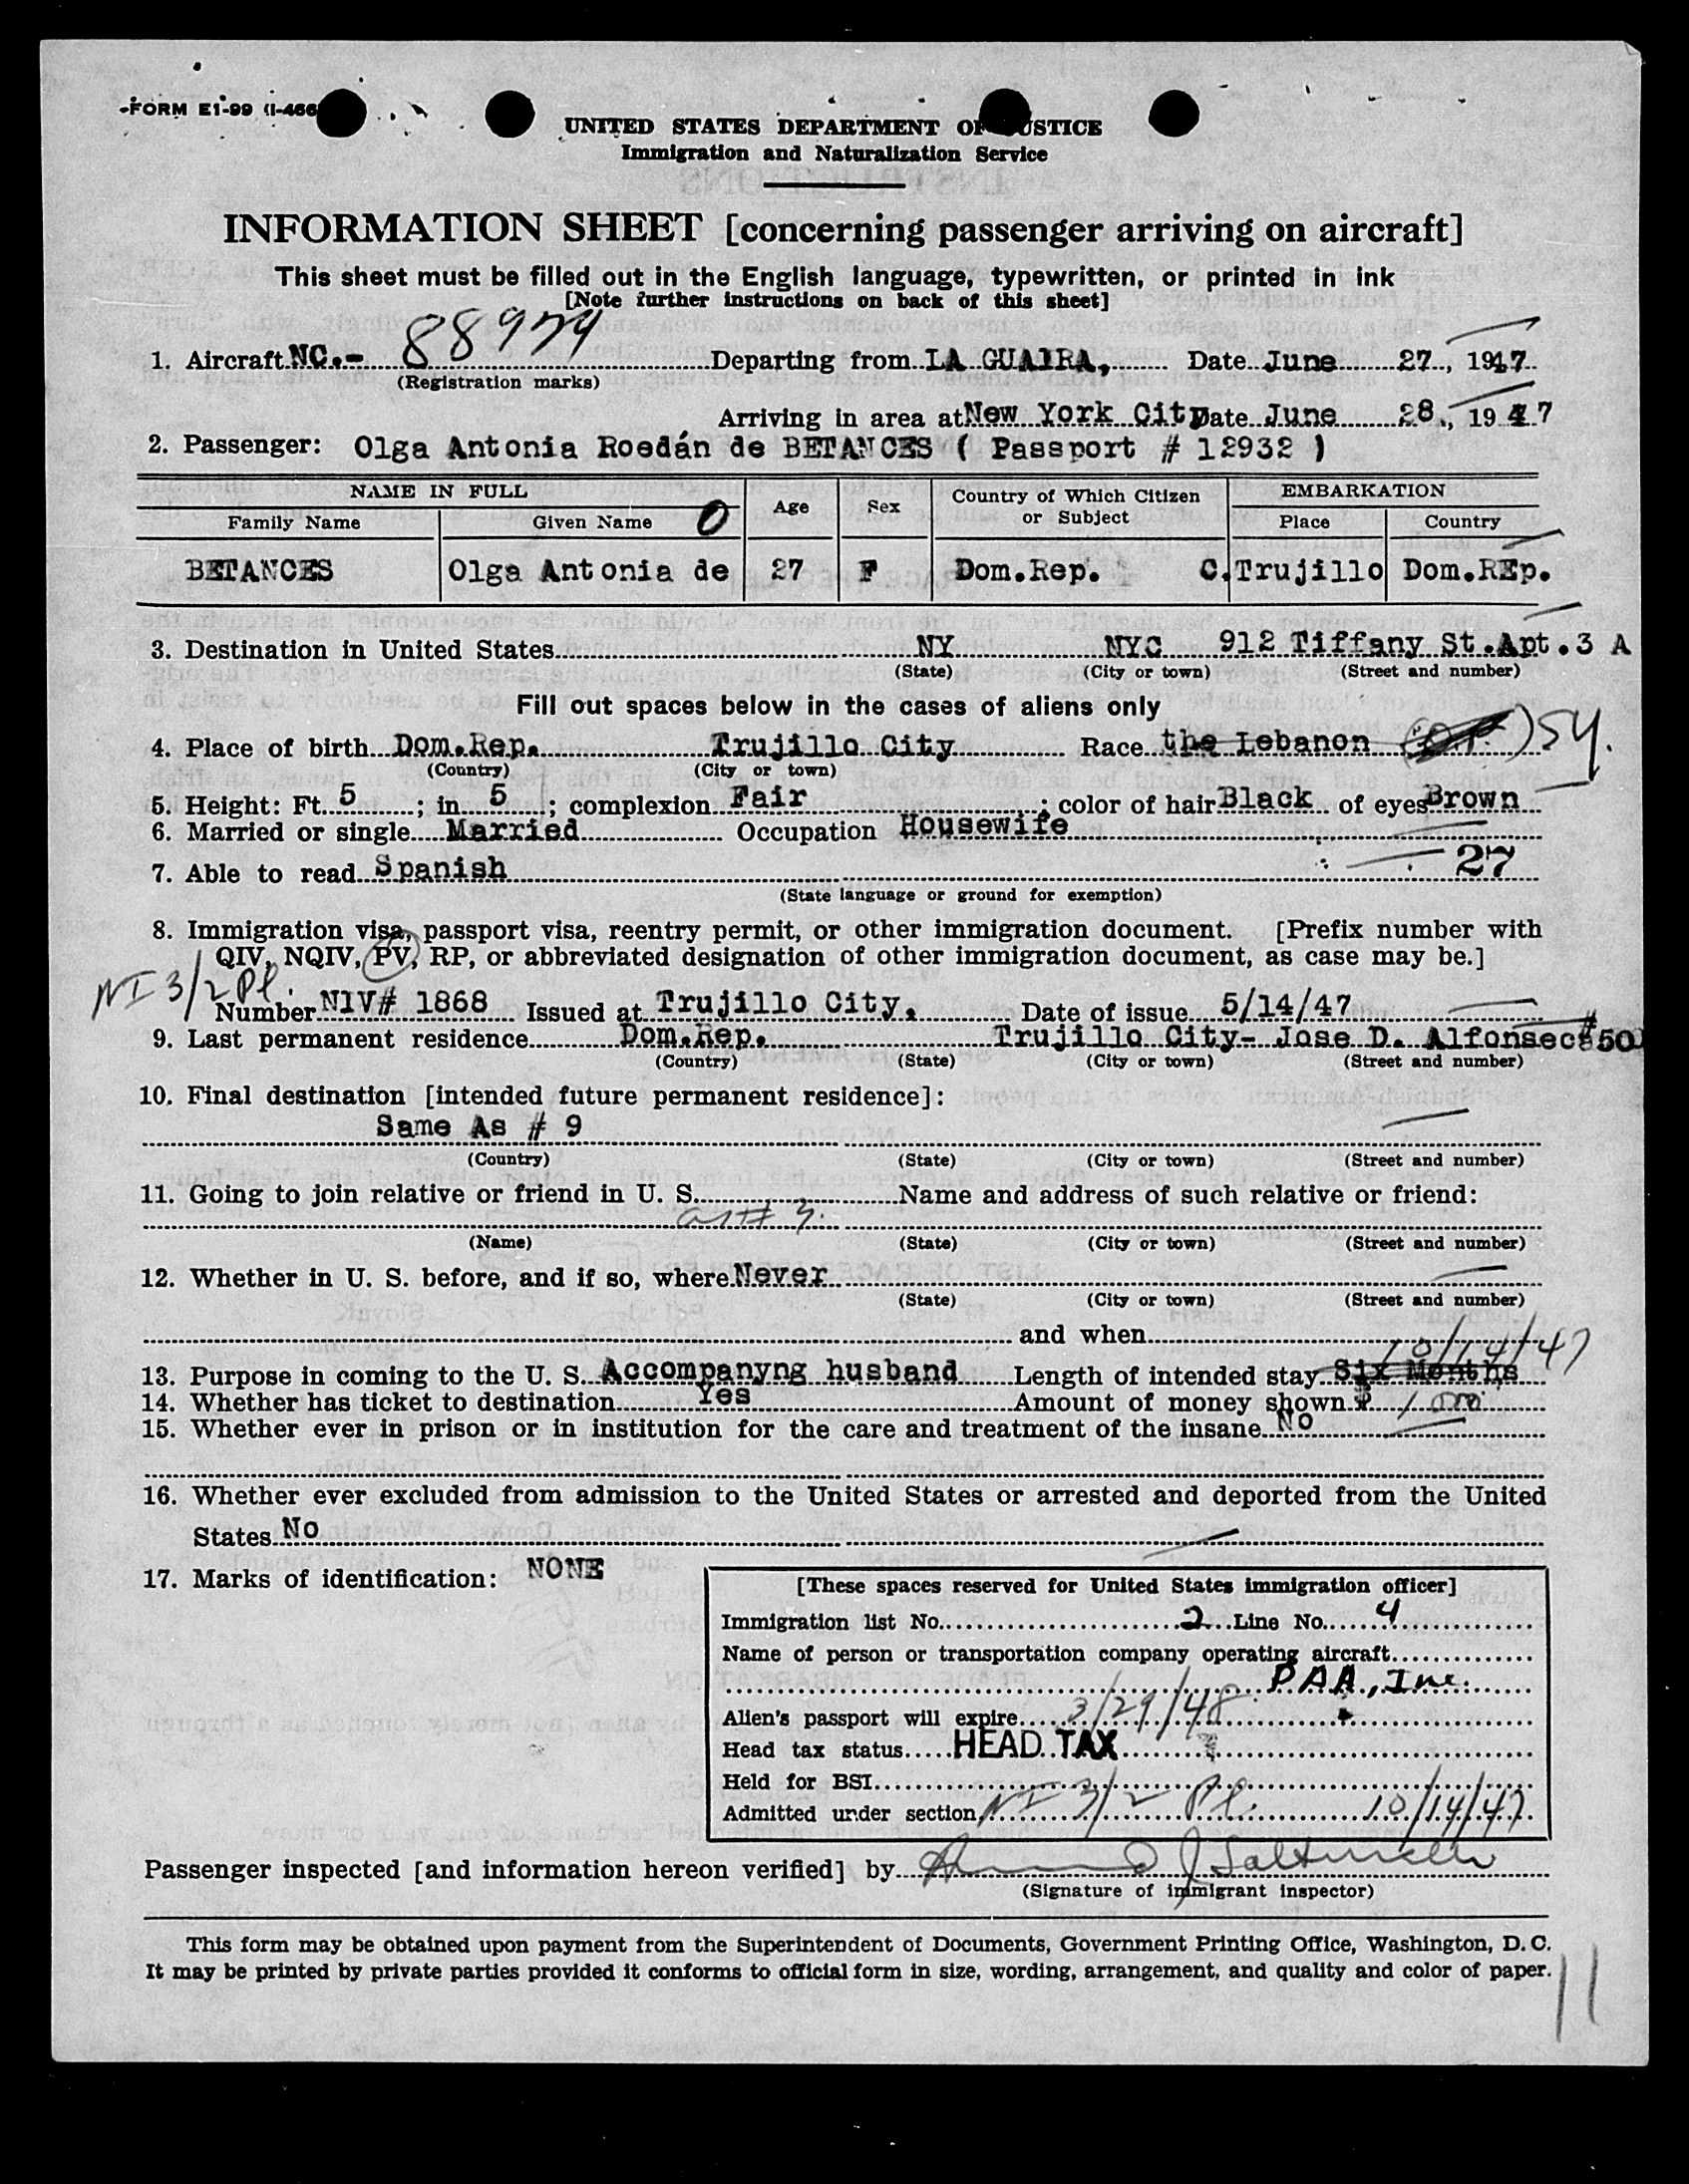 FORM E1-99 (I-466
UNITED STATES DEPARTMENT OF JUSTICE
Immigration and Naturalization Service
INFORMATION SHEET [concerning passenger arriving on aircraft]
This sheet must be filled out in the English language, typewritten, or printed in ink
[Note further instructions on back of this sheet]
1. Aircraft NC.- 88974 Departing from LA GUAIRA, Date June 27, 1947
(Registration marks)
Arriving in area at New York City Date June 28, 1947
2. Passenger: Olga Antonia Roedán de BETANCES ( Passport # 12932 )
NAME IN FULL Age Sex Country of Which Citizen or Subject EMBARKATION
Family Name Given Name O Place Country
BETANCES Olga Antonia de 27 F Dom.Rep. C.Trujillo Dom.REp.
3. Destination in United States NY NYC 912 Tiffany St.Apt.3 A
(State) (City or town) (Street and number)
Fill out spaces below in the cases of aliens only
4. Place of birth Dom.Rep. Trujillo City Race the Lebanon Sy.
(Country) (City or town)
5. Height: Ft. 5; in. 5; complexion Fair; color of hair Black of eyes Brown
6. Married or single Married Occupation Housewife
7. Able to read Spanish 27
(State language or ground for exemption)
8. Immigration visa, passport visa, reentry permit, or other immigration document. [Prefix number with
QIV, NQIV, PV, RP, or abbreviated designation of other immigration document, as case may be.]
NI 3/2 Pl.
Number NIV# 1868 Issued at Trujillo City, Date of issue 5/14/47
9. Last permanent residence Dom.Rep. Trujillo City- Jose D. Alfonsec #50
(Country) (State) (City or town) (Street and number)
10. Final destination [intended future permanent residence]:
Same As # 9
(Country) (State) (City or town) (Street and number)
11. Going to join relative or friend in U. S. Name and address of such relative or friend:
as # 3.
(Name) (State) (City or town) (Street and number)
12. Whether in U. S. before, and if so, where Never
(State) (City or town) (Street and number)
and when
10/14/47
13. Purpose in coming to the U. S. Accompanyng husband Length of intended stay Six Months
14. Whether has ticket to destination Yes Amount of money shown $ 1000
15. Whether ever in prison or in institution for the care and treatment of the insane No
16. Whether ever excluded from admission to the United States or arrested and deported from the United
States No
17. Marks of identification: NONE
[These spaces reserved for United States immigration officer]
Immigration list No. 2 Line No. 4
Name of person or transportation company operating aircraft
PAA, Inc.
Alien's passport will expire 3/29/48
Head tax status HEAD TAX
Held for BSI
Admitted under section NI 3/2 Pl. 10/14/47.
Passenger inspected [and information hereon verified] by
(Signature of immigrant inspector)
This form may be obtained upon payment from the Superintendent of Documents, Government Printing Office, Washington, D. C.
It may be printed by private parties provided it conforms to official form in size, wording, arrangement, and quality and color of paper.
11